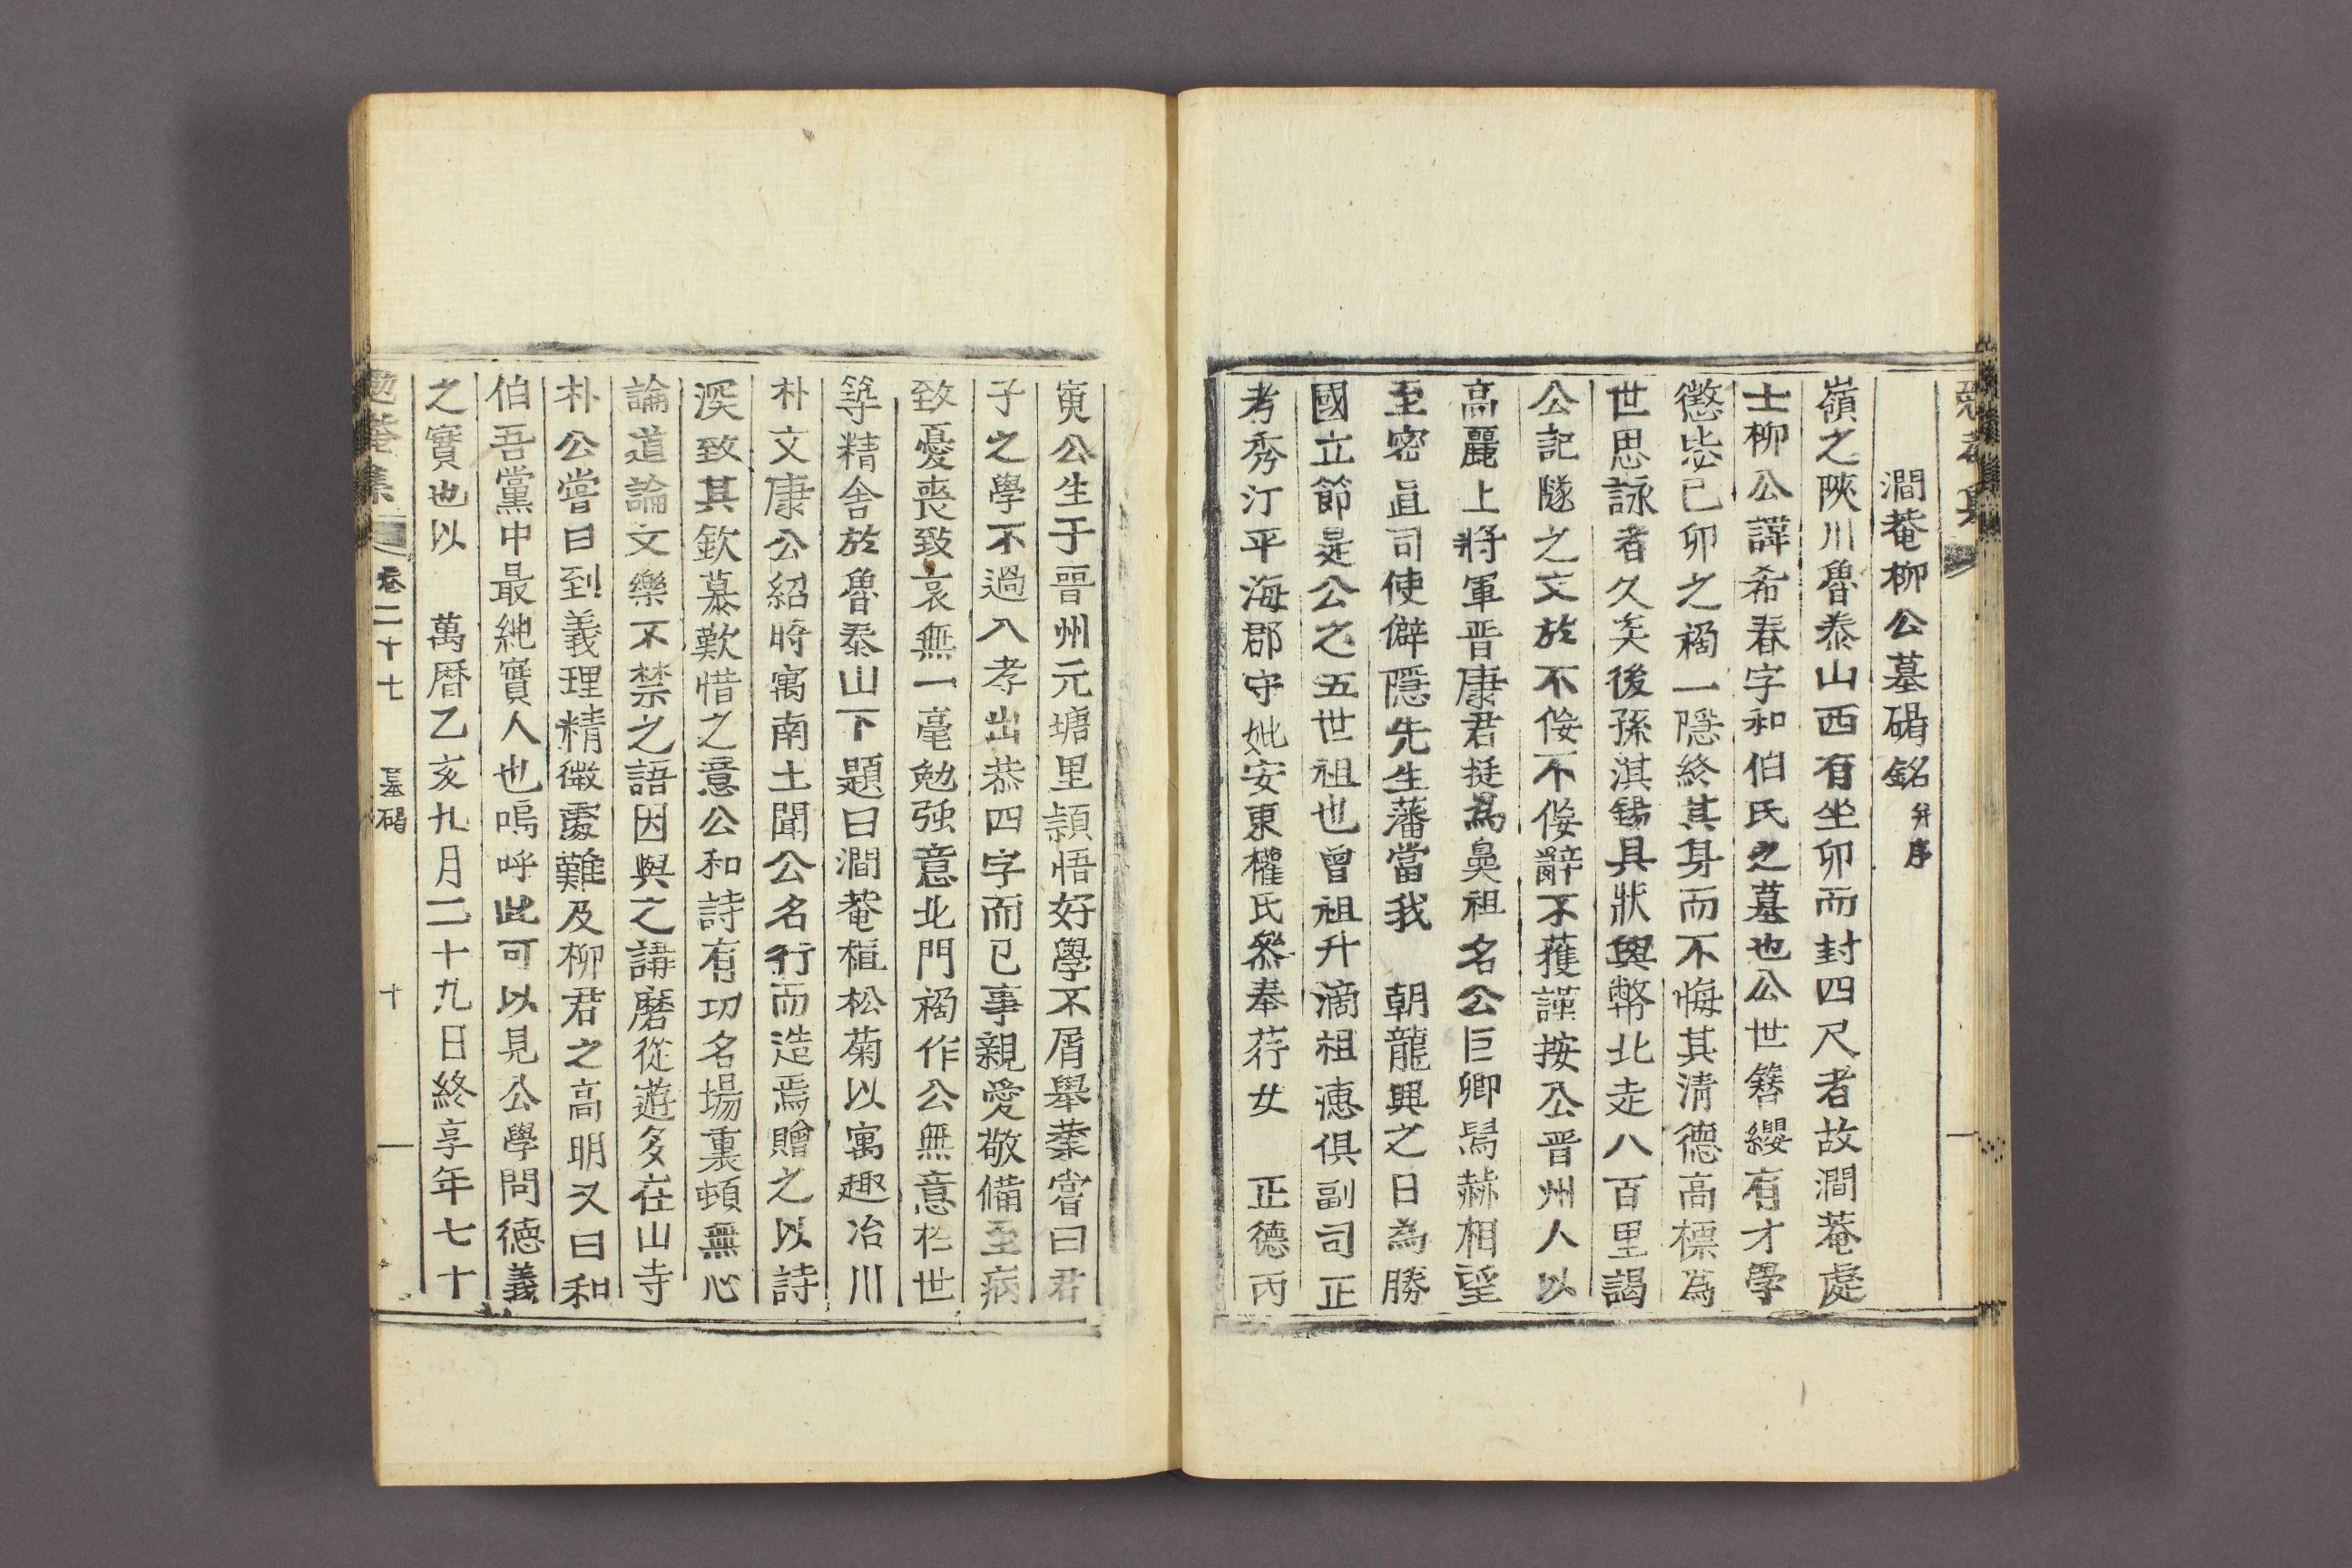 澗菴柳公墓碣銘 并序
嶺之陝川魯泰山西有坐卯而封四尺者故澗菴處
士柳公諱希春字和伯氏之墓也公世簪纓有才學
懲毖己卯之禍一隱終其身而不悔其淸德高標為
世思詠者久矣後孫淇錫具狀與幣北走八百里謁
公記隧之文於不侫不侫辭不獲謹按公晋州人以
高麗上將軍晋康君挺為鼻祖名公巨卿舃赫相望
至密直司使僻隱先生藩當我 朝龍興之日為勝
國立節是公之五世祖也曾祖升滴祖漶俱副司正
考秀汀平海郡守妣安東權氏叅奉荇女 正德丙
寅公生于晋州元塘里頴悟好學不屑舉業嘗曰君
子之學不過入孝出恭四字而已事親愛敬備至病
致憂喪致哀無一毫勉强意北門禍作公無意於世
築精舍於魯泰山下題曰澗菴植松菊以寓趣冶川
朴文康公紹時寓南土聞公名行而造焉贈之以詩
深致其欽慕歎惜之意公和詩有功名場裏頓無心
論道論文樂不禁之語因與之講磨從遊多在山寺
朴公嘗曰到義理精微處難及柳君之高明又曰和
伯吾黨中最純實人也嗚呼此可以見公學問德義
之實也以 萬曆乙亥九月二十九日終享年七十
勉菴集 卷二十七 墓碣 十